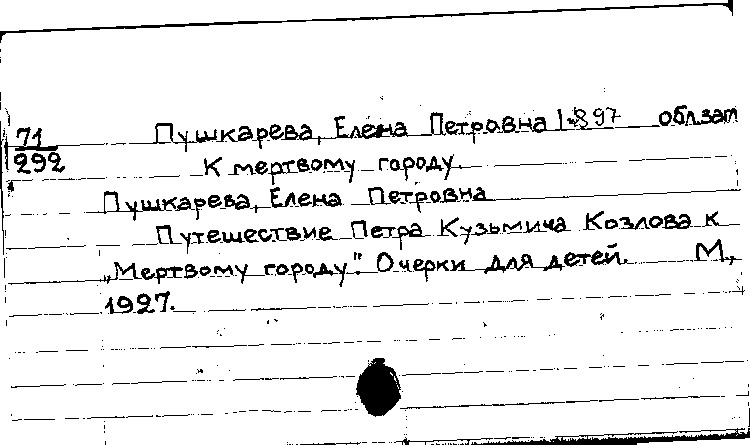 71
292
Пушкарева, Елена Петровна 1897 обл.зат
К мертвому городу.
Пушкарева, Елена Петровна
Путешествие Петра Кузьмича Козлова к
„Мертвому городу". Очерки для детей. М.,
1927.